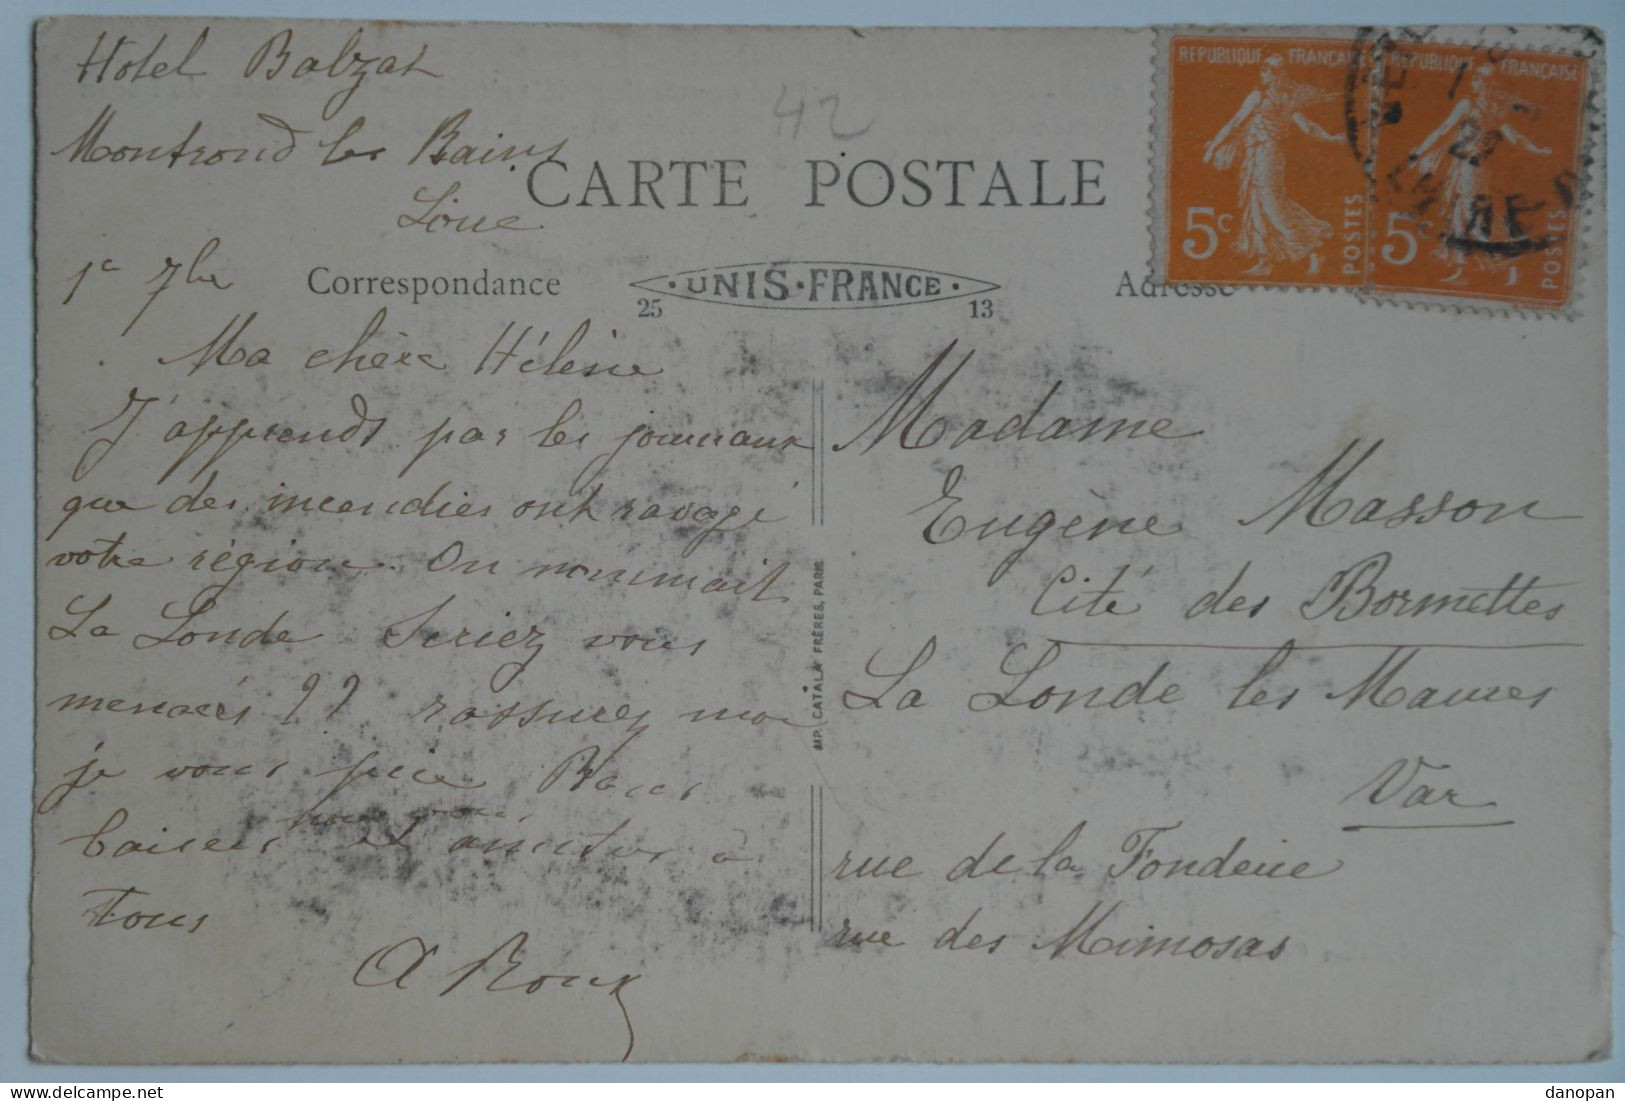 Hotel Balzat
Montrond les Bains
Loire
42
CARTE POSTALE
1er 7bre
Correspondance
· UNIS · FRANCE ·
25 13
Adresse
REPUBLIQUE FRANÇAISE
5c
POSTES
REPUBLIQUE FRANÇAISE
5c
POSTES
Ma chère Hélène
J'apprends par les journaux
que des incendies ont ravagé
votre région. On nommait
La Londe Seriez vous
menacés ?? rassurez moi
je vous prie Bons
baisers et amitiés à
tous
A Roux
IMP. CATALA FRÈRES, PARIS
Madame
Eugène Masson
Cité des Bormettes
La Londe les Maures
Var
rue de la Fonderie
rue des Mimosas
danopan